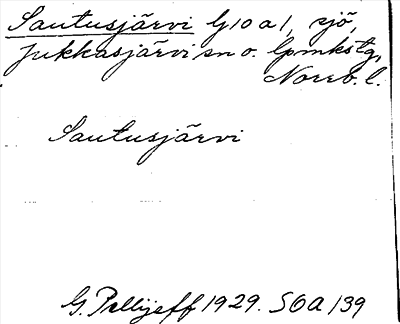 Sautusjärvi G10a1, sjö,
Jukkasjärvi sn o. lpmkstg,
Norrb. l.
Sautusjärvi
G. Pellijeff 1929. S6a 139